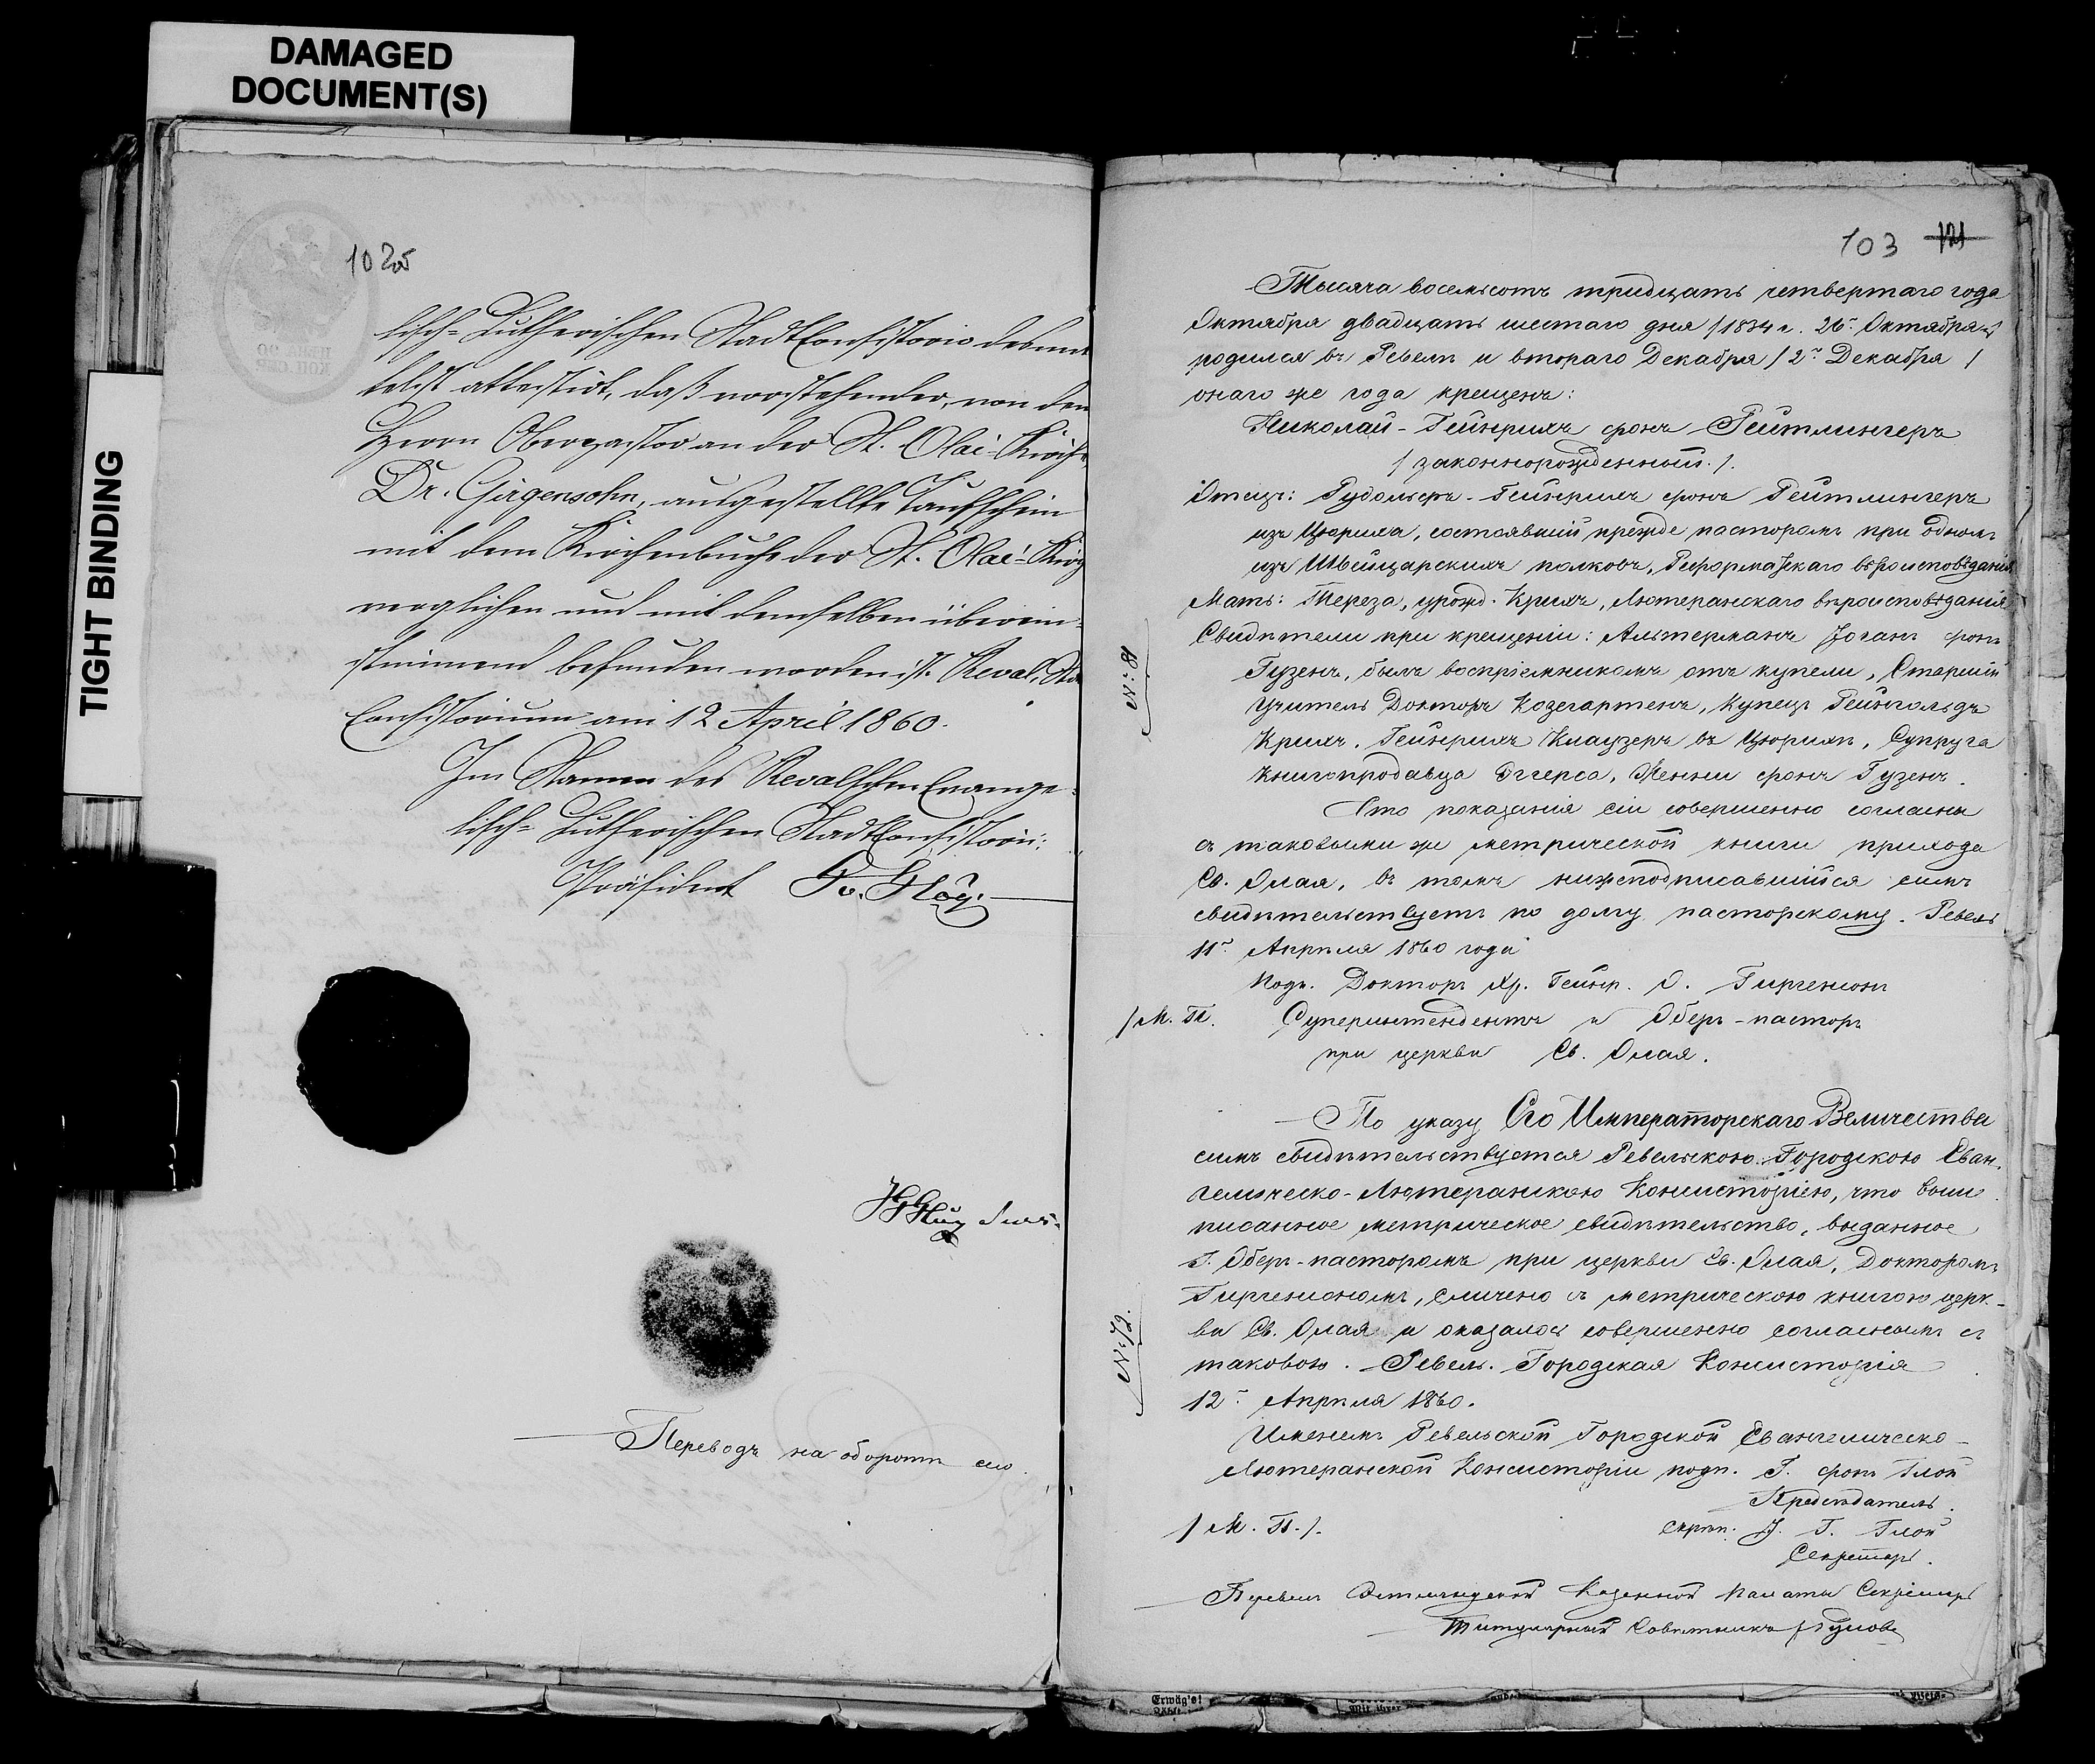 DAMAGED
DOCUMENT(S)
TIGHT BINDING
102об
lisch-Lutherischen Stadt Consistorio desmit
telst attestirt, daß vorstehender, von dem
Herrn Oberpastor an der St. Olai-Kirche
Dr. Girgensohn, ausgestellte Taufschein
mit dem Kirchenbuche der St. Olai-Kirch
verglichen und mit demselben überein-
stimmend befunden worden ist. Reval, Sta
Consistorium am 12 April 1860.
Im Namen des Revalschen Evange-
lisch-Lutherischen Stadt Consistorii:
Präsident
Переводъ на оборотѣ сего.
103 121
Тысяча восемьсотъ тридцать четвертаго года
Октября двадцать шестаго дня /1834 г. 26го Октября/
родился въ Ревелѣ и втораго Декабря /2го Декабря/
онаго же года крещенъ:
Николай-Гейнрихъ фонъ Рейтлингеръ
/законнорожденный./.
Отецъ: Рудольфъ-Гейнрихъ фонъ Рейтлингеръ
изъ Цюриха, состоявшій прежде пасторомъ при одномъ
изъ Швейцарскихъ полковъ, Реформатскаго вѣроисповѣданія
Мать: Тереза, урожд. Крихъ, Лютеранскаго вѣроисповѣданія
Свидѣтели при крещеніи: Альтерманъ Іоганъ фонъ
Гузенъ, былъ воспріемникомъ отъ купели, Старшій
Учитель Докторъ Козегартенъ, Купецъ Рейнгольдъ
Крихъ, Гейнрихъ Клаузеръ въ Цюрихѣ, Супруга
Книгопродавца Эггерса, Женни фонъ Гузенъ.
Что показанія сіи совершенно согласны
съ таковыми же метрической книги прихода
Св. Олая, въ томъ нижеподписавшійся симъ
свидѣтельствуетъ по долгу пасторскому. Ревель
11го Апрѣля 1860 года
Подп. Докторъ Хр. Гейнр. О. Гиргенсонъ
/М. П. Суперинтендентъ и Оберъ-пасторъ
при церкви Св. Олая.
№: 81
По указу Его Императорскаго Величества
симъ свидѣтельствуется Ревельскою Городскою Еван-
гелическо-Лютеранскою Консисторіею, что выше
писанное метрическое свидѣтельство, выданное
Г. Оберъ-пасторомъ при церкви Св. Олая, Докторомъ
Гиргенсономъ, сличено съ метрическою книгою церк-
ви Св. Олая и оказалось совершенно согласнымъ съ
таковою. Ревель. Городская Консисторія
12го Апрѣля 1860.
№: 79.
Именемъ Ревельской Городской Евангелическо-
Лютеранской Консисторіи подп. Г. фонъ Глой
Предсѣдатель.
/М. П./. скрѣп. І. Г. Глой
Секретарь.
Перевелъ Эстляндской Казенной Палаты Секретарь
Титулярный Совѣтникъ